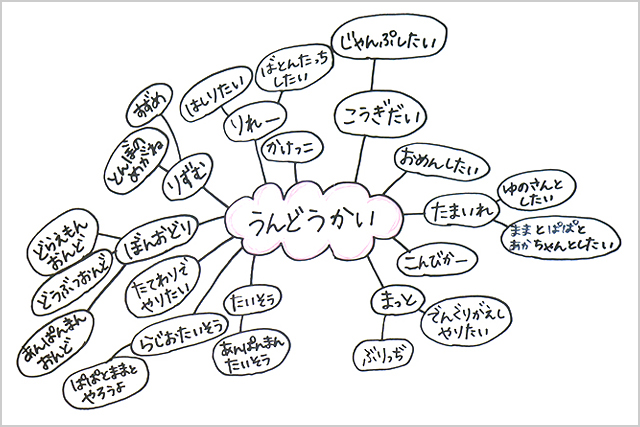 じゃんぷしたい
ばとんたっち
したい
はしりたい
りれー
こうぎだい
かけっこ
すずめ
とんぼの
めがね
りずむ
おめんしたい
ゆのさんと
したい
たまいれ
ままとぱぱと
あかちゃんとしたい
うんどうかい
ぼんおどり
どらえもん
おんど
どうぶつおんど
あんぱんまん
おんど
こんびかー
たてわりで
やりたい
たいそう
あんぱんまん
たいそう
まっと
でんぐりがえし
やりたい
ぶりっぢ
らじおたいそう
ぱぱとままと
やろうよ